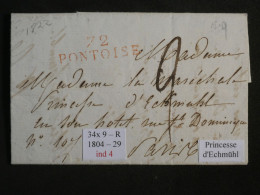 1822
72
PONTOISE
Madame
Madame la Maréchale
Princesse d'Eckmühl
en son hotel rue St Dominique
N° 107
Paris
34x 9 – R
1804 – 29
ind 4
Princesse
d'Echmühl